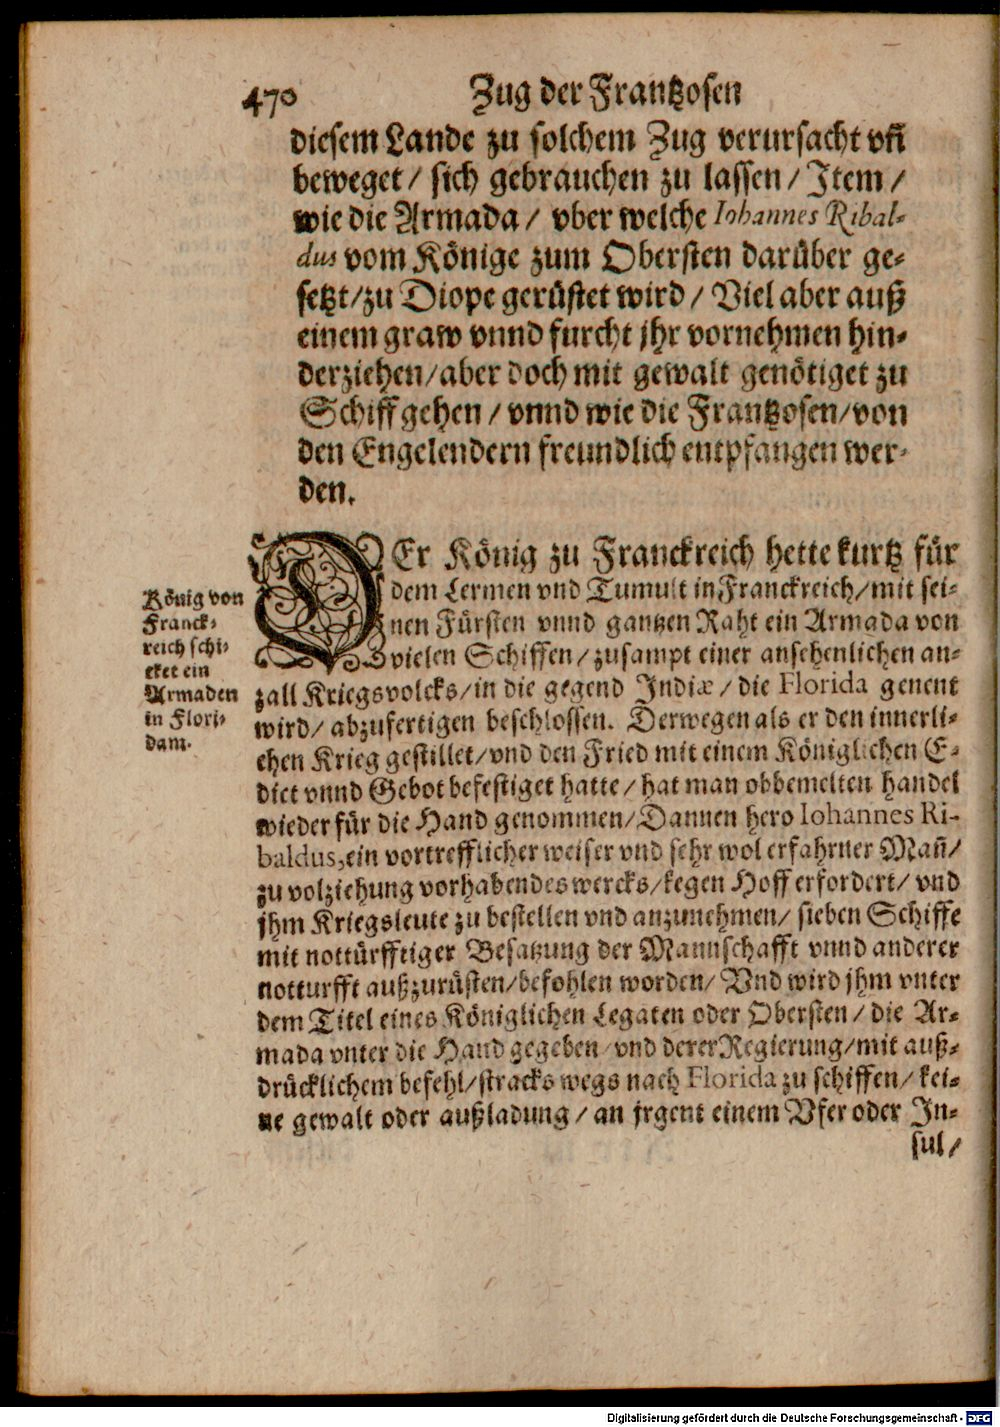 470 Zug der Frantzosen
diesem Lande zu solchem Zug verursacht vñ
beweget / sich gebrauchen zu lassen / Item /
wie die Armada / vber welche Iohannes Ribal-
dus vom Könige zum Obersten darüber ge-
setzt / zu Diope gerüstet wird / Viel aber auß
einem graw vnnd furcht jhr vornehmen hin-
derziehen / aber doch mit gewalt genötiget zu
Schiff gehen / vnnd wie die Frantzosen / von
den Engelendern freundlich entpfangen wer-
den.
DEr König zu Franckreich hette kurtz für
dem Lermen vnd Tumult in Franckreich / mit sei-
nen Fürsten vnnd gantzen Raht ein Armada von
vielen Schiffen / zusampt einer ansehenlichen an-
zall Kriegsvolcks / in die gegend Indiæ / die Florida genent
wird / abzufertigen beschlossen. Derwegen als er den innerli-
chen Krieg gestillet / vnd den Fried mit einem Königlichen E-
dict vnnd Gebot befestiget hatte / hat man obbemelten handel
wieder für die Hand genommen / Dannen hero Iohannes Ri-
baldus, ein vortrefflicher weiser vnd sehr wol erfahrner Mañ /
zu volziehung vorhabendes wercks / kegen Hoff erfordert / vnd
jhm Kriegsleute zu bestellen vnd anzunehmen / sieben Schiffe
mit nottürfftiger Besatzung der Mannschafft vnnd anderer
notturfft außzurüsten / befohlen worden / Vnd wird jhm vnter
dem Titel eines Königlichen Legaten oder Obersten / die Ar-
mada vnter die Hand gegeben / vnd derer Regierung / mit auß-
drücklichem befehl / stracks wegs nach Florida zu schiffen / kei-
ne gewalt oder außladung / an jrgent einem Vfer oder In-
sul /
König von
Franck-
reich schi-
cket ein
Armaden
in Flori-
dam.
Digitalisierung gefördert durch die Deutsche Forschungsgemeinschaft - DFG